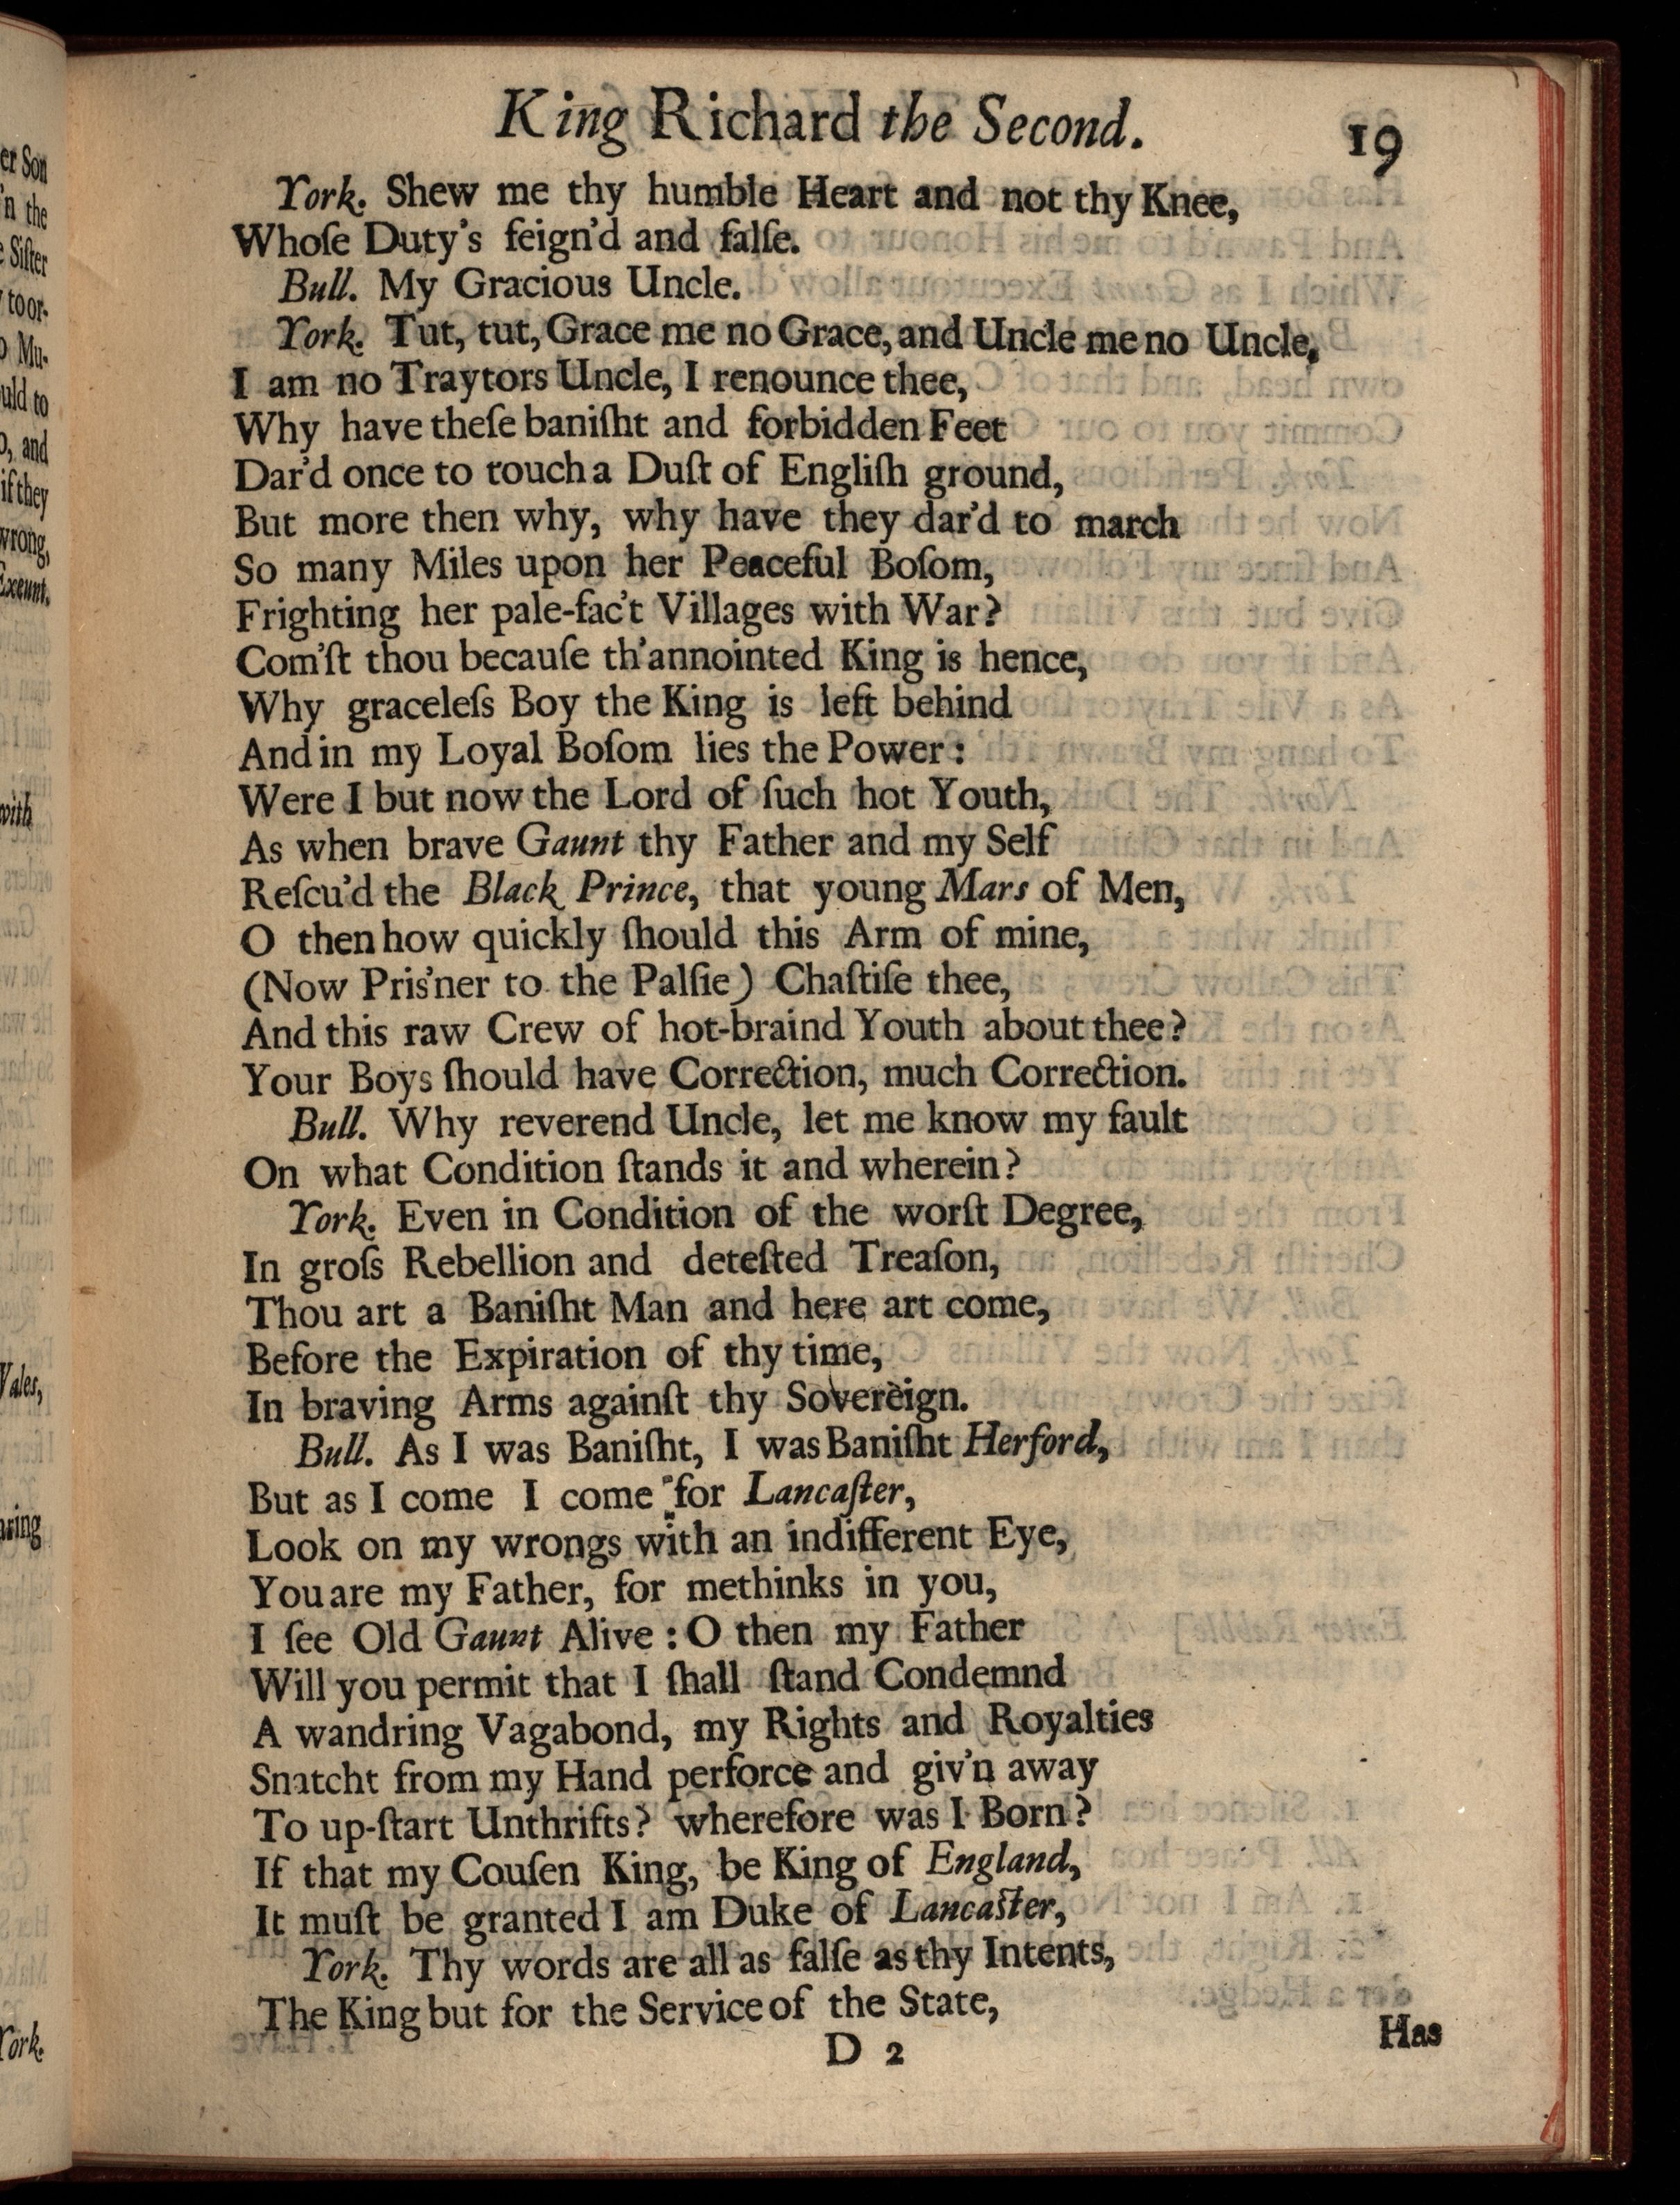 er Son
'n the
e Siſter
toor-
o Mu-
uld to
o, and
if they
wrong,
Exeunt.
with
Vales,
aring
York.
King Richard the Second. 19
York. Shew me thy humble Heart and not thy Knee,
Whoſe Duty's feign'd and falſe.
Bull. My Gracious Uncle.
York. Tut, tut, Grace me no Grace, and Uncle me no Uncle,
I am no Traytors Uncle, I renounce thee,
Why have theſe baniſht and forbidden Feet
Dar'd once to touch a Duſt of Engliſh ground,
But more then why, why have they dar'd to march
So many Miles upon her Peaceful Boſom,
Frighting her pale-fac't Villages with War?
Com'ſt thou becauſe th'annointed King is hence,
Why graceleſs Boy the King is left behind
And in my Loyal Boſom lies the Power:
Were I but now the Lord of ſuch hot Youth,
As when brave Gaunt thy Father and my Self
Reſcu'd the Black Prince, that young Mars of Men,
O then how quickly ſhould this Arm of mine,
(Now Pris'ner to the Palſie) Chaſtiſe thee,
And this raw Crew of hot-braind Youth about thee?
Your Boys ſhould have Correction, much Correction.
Bull. Why reverend Uncle, let me know my fault
On what Condition ſtands it and wherein?
York. Even in Condition of the worſt Degree,
In groſs Rebellion and deteſted Treaſon,
Thou art a Baniſht Man and here art come,
Before the Expiration of thy time,
In braving Arms againſt thy Sovereign.
Bull. As I was Baniſht, I was Baniſht Herford,
But as I come I come for Lancaſter,
Look on my wrongs with an indifferent Eye,
You are my Father, for methinks in you,
I ſee Old Gaunt Alive : O then my Father
Will you permit that I ſhall ſtand Condemnd
A wandring Vagabond, my Rights and Royalties
Snatcht from my Hand perforce and giv'n away
To up-ſtart Unthrifts? wherefore was I Born?
If that my Couſen King, be King of England,
It muſt be granted I am Duke of Lancaſter,
York. Thy words are all as falſe as thy Intents,
The King but for the Service of the State,
D 2
Has